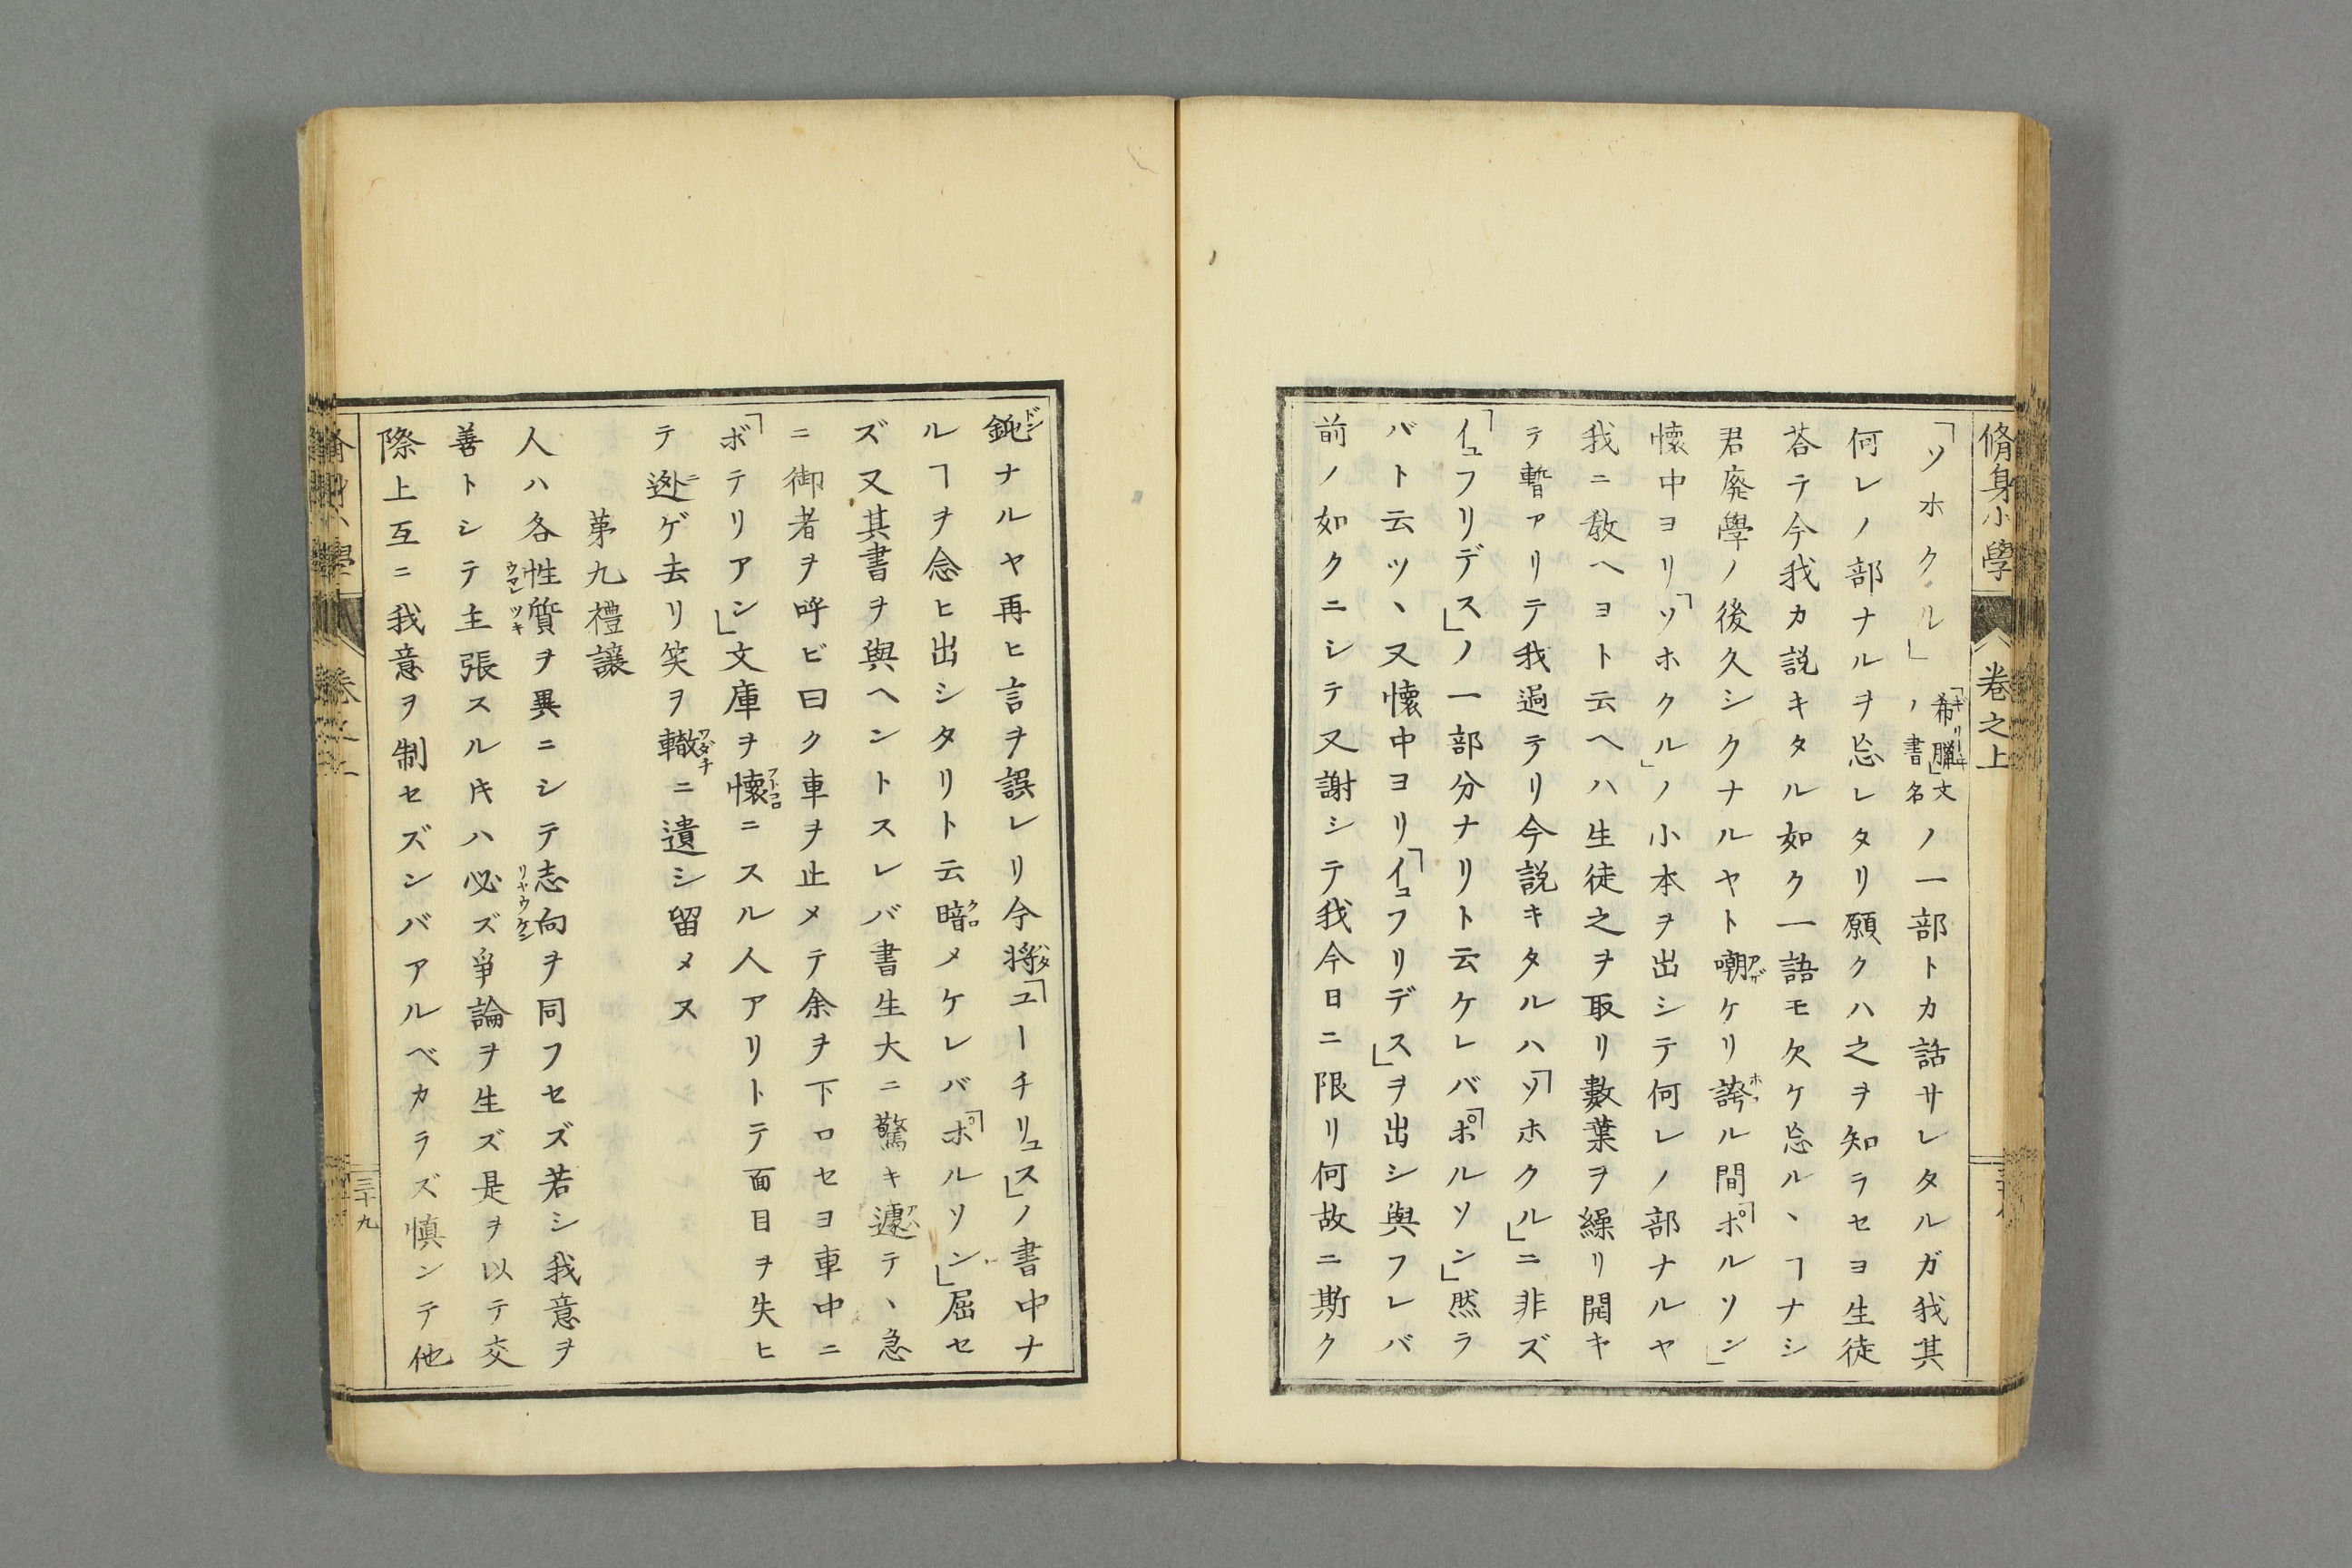 脩身小學 卷之上
「ソホクル」「希臘」文ノ書名ノ一部トカ話サレタルガ我其
何レノ部ナルヲ忘レタリ願クハ之ヲ知ラセヨ生徒
荅テ今我カ説キタル如ク一語モ欠ケ忘ルヽヿナシ
君廃學ノ後久シクナルヤト嘲ケリ誇ル間「ポルソン」
懐中ヨリ「ソホクル」ノ小本ヲ出シテ何レノ部ナルヤ
我ニ敎ヘヨト云ヘハ生徒之ヲ取リ數葉ヲ繰リ開キ
テ暫アリテ我過テリ今説キタルハ「ソホクル」ニ非ズ
「イュフリデス」ノ一部分ナリト云ケレバ「ポルソン」然ラ
バト云ツヽ又懐中ヨリ「イュフリデス」ヲ出シ與フレバ
前ノ如クニシテ又謝シテ我今日ニ限リ何故ニ斯ク
鈍ナルヤ再ヒ言ヲ誤レリ今將「ユーチリュス」ノ書中ナ
ルヿヲ念ヒ出シタリト云暗メケレバ「ポルソン」屈セ
ズ又其書ヲ與ヘントスレバ書生大ニ驚キ遽テヽ急
ニ御者ヲ呼ビ曰ク車ヲ止メテ余ヲ下ロセヨ車中ニ
「ボテリアン」文庫ヲ懐ニスル人アリトテ面目ヲ失ヒ
テ迯ゲ去リ笑ヲ轍ニ遺シ留メヌ
第九禮讓
人ハ各性質ヲ異ニシテ志向ヲ同フセズ若シ我意ヲ
善トシテ主張スル𪜈ハ必ズ爭論ヲ生ズ是ヲ以テ交
際上互ニ我意ヲ制セズンバアルベカラズ愼ンテ他
三十九